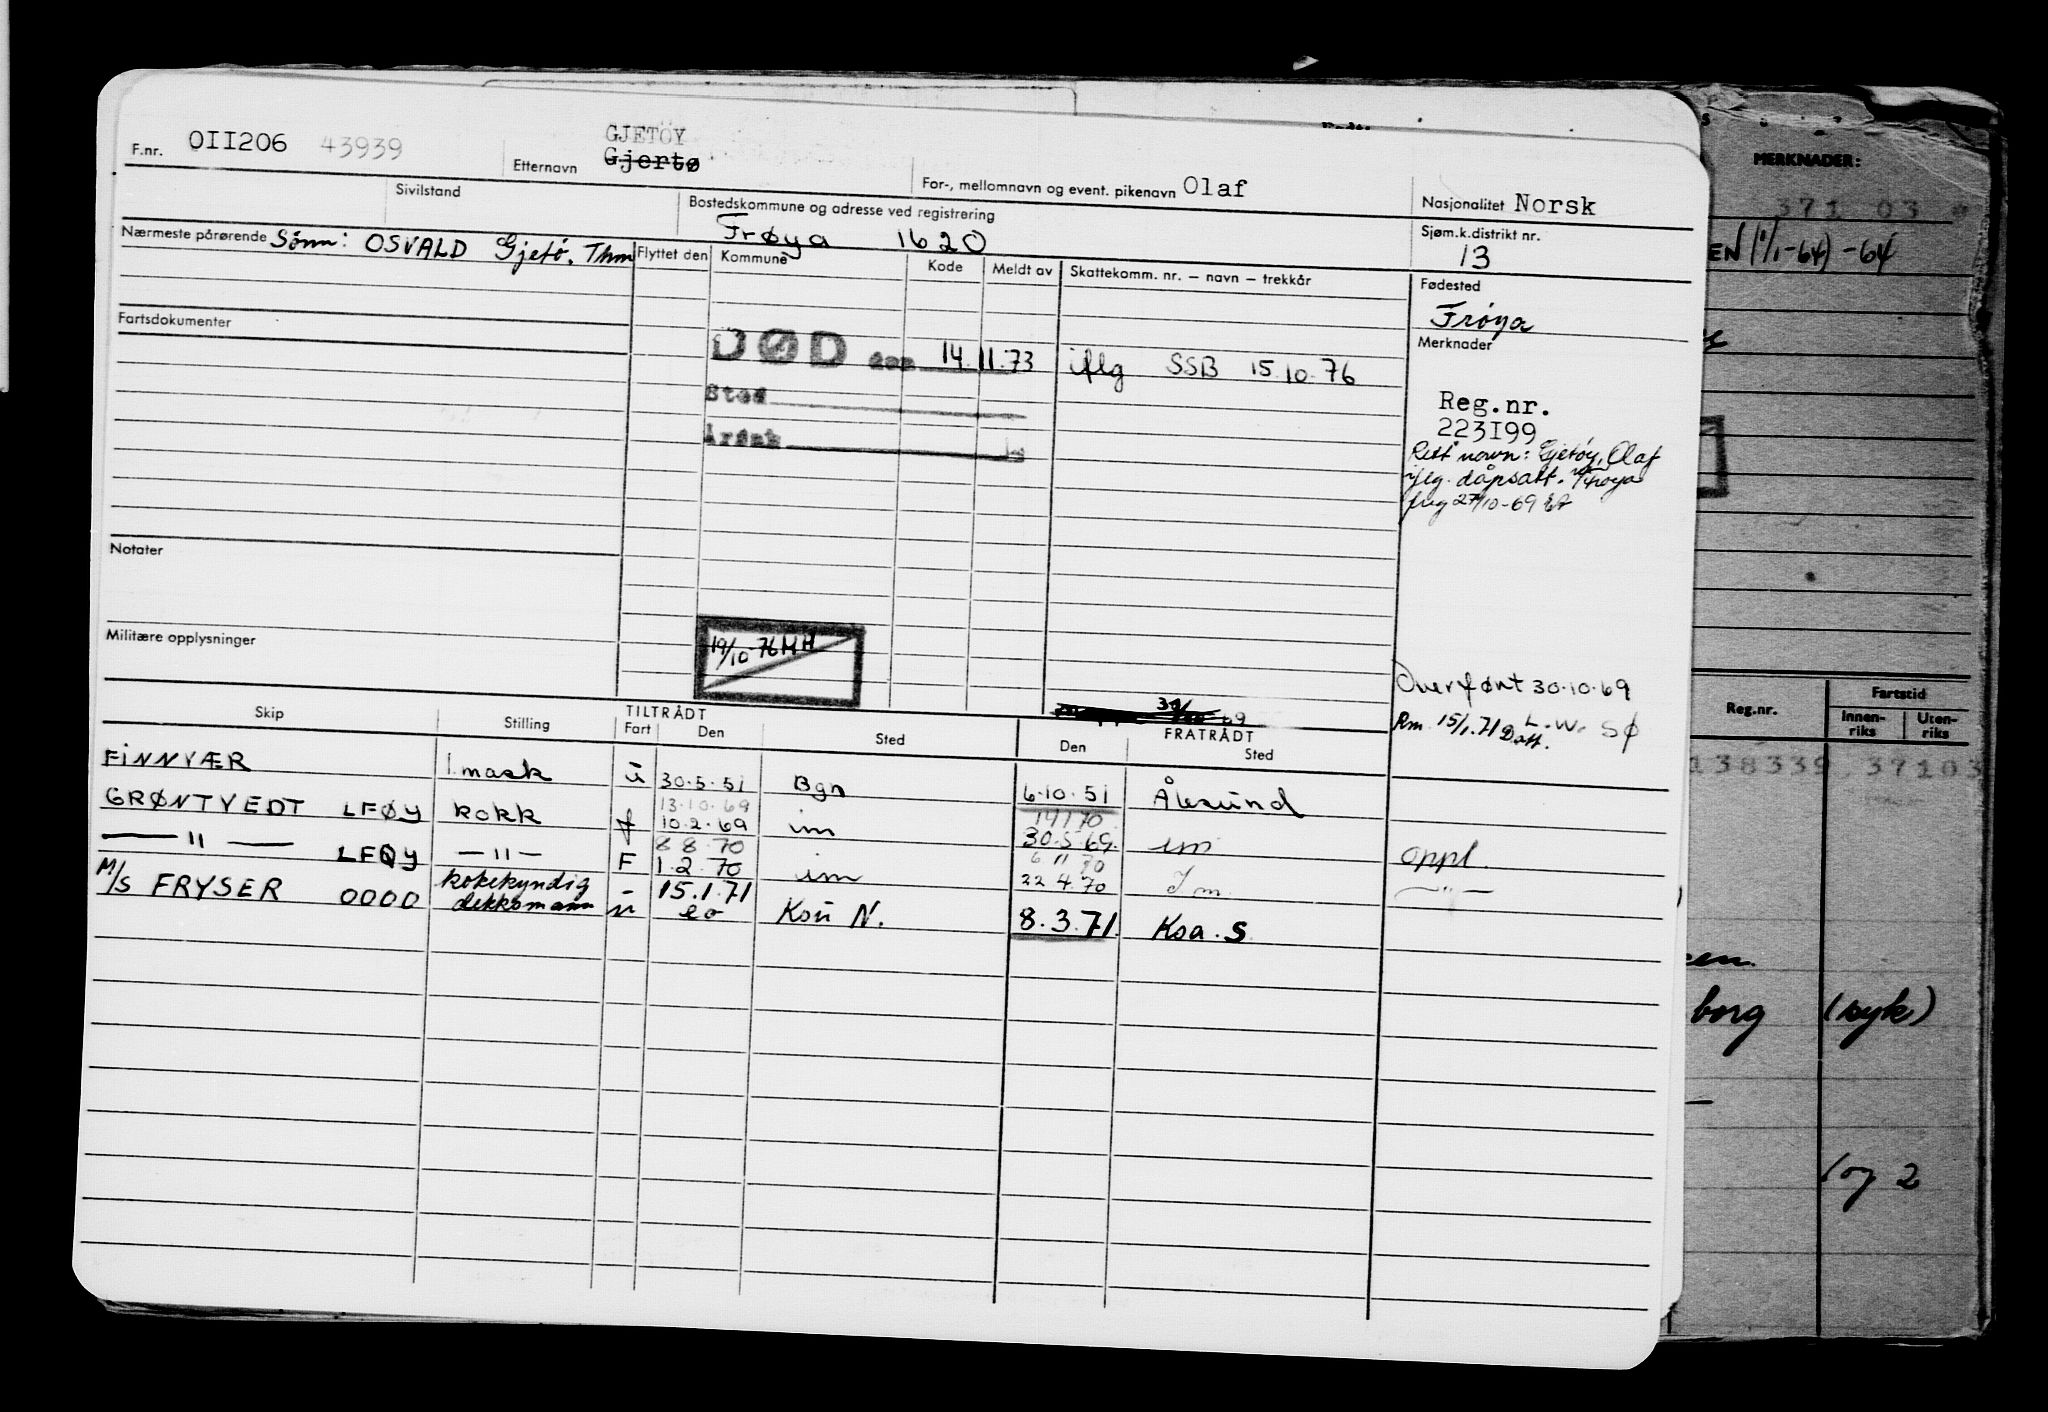 F.nr. OII206 43939
Etternavn GJETÖY
Gjertø
For-, mellomnavn og event. pikenavn Olaf
Nasjonalitet Norsk
Sivilstand
Bostedskommune og adresse ved registrering
Frøya 1620
Sjøm.k.distrikt nr.
13
Nærmeste pårørende Sønn: OSVALD Gjetø. Thm
Flyttet den Kommune Kode Meldt av Skattekomm. nr. – navn – trekkår
Fødested
Frøya
Fartsdokumenter
DØD den 14.11.73 iflg SSB 15.10.76
Sted
Årsak
Merknader
Reg.nr.
223I99
Rett navn: Gjetøy, Olaf
iflg. dåpsatt. Frøya
27/10-69
Notater
Militære opplysninger
19/10-76 MH
Overført 30.10.69
Rm 15/1.71 L.W. SØ
Datt.
TILTRÅDT FRATRÅDT
Skip Stilling Fart Den Sted Den Sted
FINNVÆR 1. mask u 30.5.51 Bgn 6.10.51 Ålesund
13.10.69 19 1 70
GRØNTVEDT LFØY kokk f 10.2.69 im 30.5.69. im oppl.
8 8 70 6 11 70
— " — LFØY — " — F 1.2.70 im 22 4.70 Im — " —
M/S FRYSER 0000 kokekyndig dekksmann - u 15.1.71 eo Ksu N. 8.3.71. Ksa. S
MERKNADER:
371 03
EN (1/1-64) -64
Reg.nr. Fartstid
Innen-riks Uten-riks
138339 37103
borg (syk)
og 2